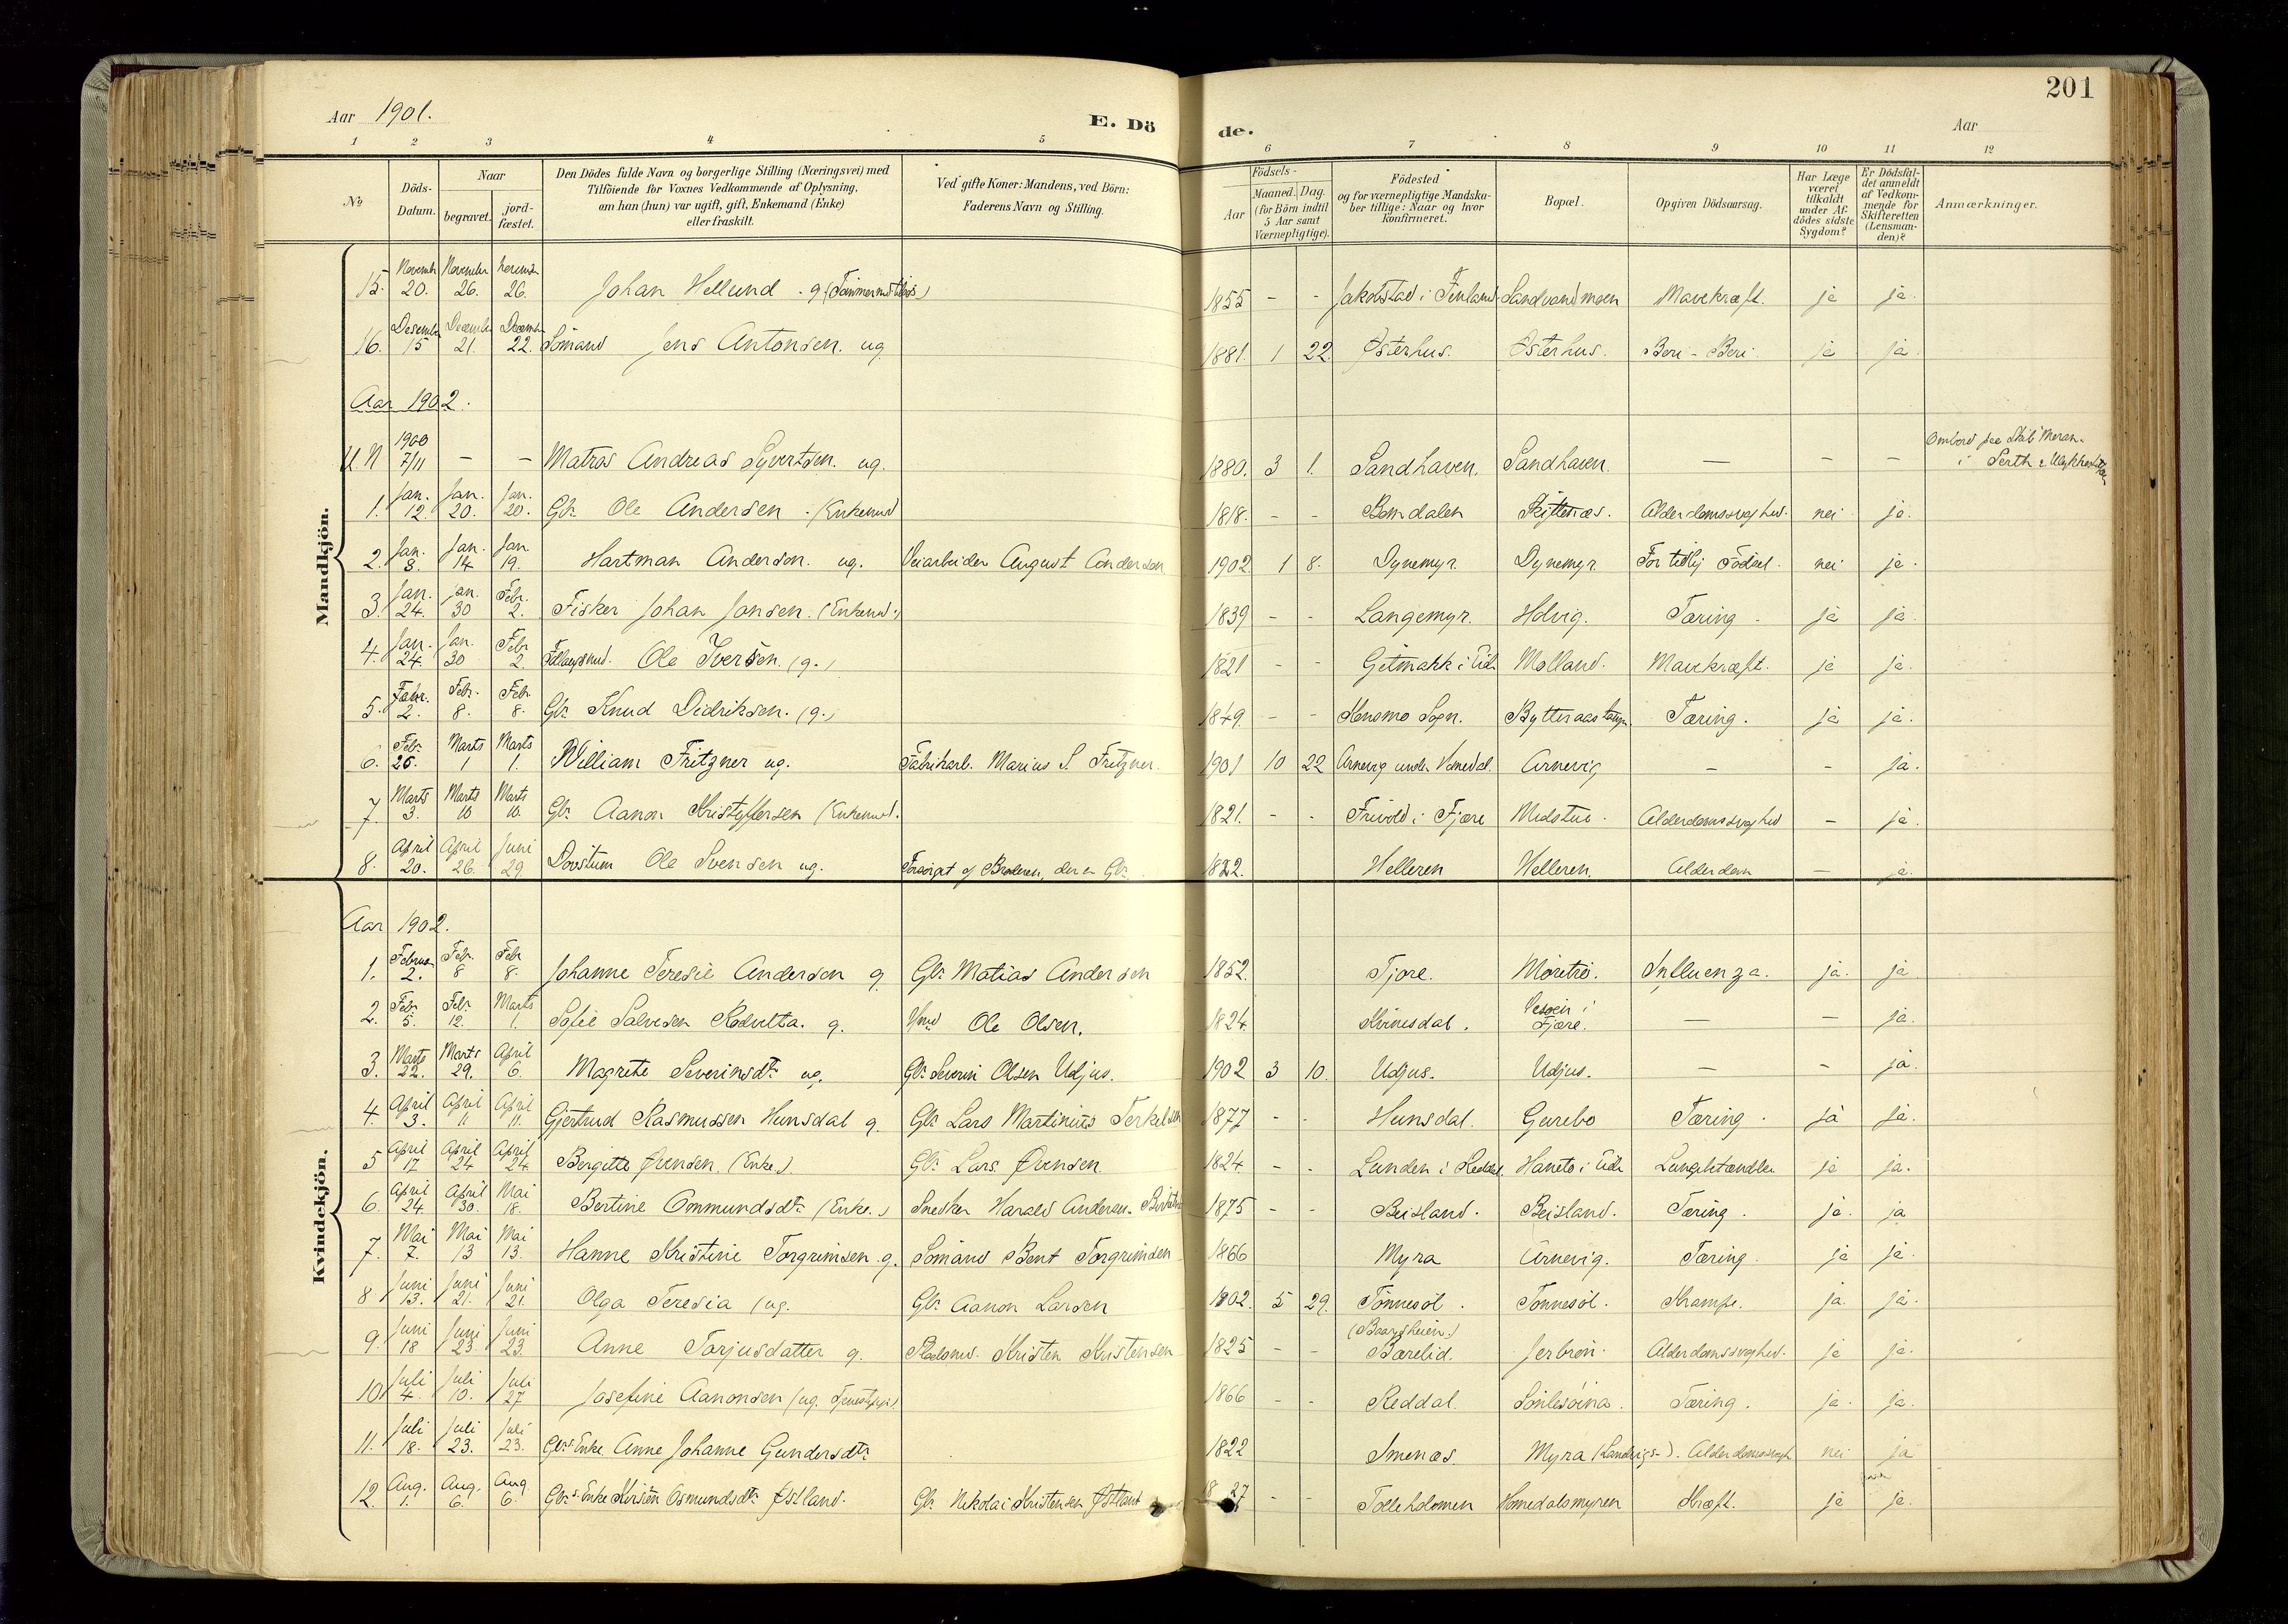 201
Aar 1901.
E. Dö
de.
Aar
1 2 3 4 5 6 7 8 9 10 11 12
№
Döds-
Datum.
Naar
begravet.
jord-
fæstet.
Den Dödes fulde Navn og borgerlige Stilling (Næringsvei) med
Tilföiende for Voxnes Vedkommende af Oplysning,
om han (hun) var ugift, gift, Enkemand (Enke)
eller fraskilt.
Ved gifte Koner: Mandens, ved Börn:
Faderens Navn og Stilling.
Födsels-
Aar
Maaned. Dag.
(for Börn indtil
5 Aar samt
Værnepligtige).
Födested
og for værnepligtige Mandska-
ber tillige: Naar og hvor
konfirmeret.
Bopæl.
Opgiven Dödsaarsag.
Har Læge
været
tilkaldt
under Af-
dödes sidste
Sygdom?
Er Dödsfal-
det anmeldt
af Vedkom-
mende for
Skifteretten
(Lensman-
den)?
Anmærkninger.
Mandkjön.
15. November 20. November 26. 26. Johan Hellund g. 1855 - - Jakobstad i Finland Sandvandmoen Mavekræft. ja ja.
16. Desember 15 December 21. December 22. Sömand Jens Antonsen. ug 1881. 1 22. Østerhus. Østerhus. Beri-Beri. ja ja.
Aar 1902.
U.N 1900 7/11 - - Matros Andreas Syvertsen. ug. 1880. 3 1. Sandhaven. Sandhaven. - - - Ombord paa Skib
1. Jan. 12. Jan. 20. Jan. 20. Gbr. Ole Andersen (Enkemd 1818. - - Bomdalen Alderdomssvaghed. nei ja.
2. Jan. 8. Jan. 14 Jan. 19. Hartman Anderson. ug. Veiarbeider August Anderson 1902. 1 8. Dynemyr Dynemyr For tidlig Födsel. nei ja.
3. Jan. 24. Jan. 30 Febr. 2. Fisker Johan Jansen. (Enkemd.) 1839 - - Langemyr. Holvig. Tæring - ja ja.
4. Jan. 24. Jan. 30 Febr 2. Ole Iversen. (g.) 1821 - - Molland. Mavekræft. ja ja.
5. Febr. 2. Febr. 8. Febr. 8. Gbr. Knud Didriksen. (g.) 1849. - - Sogn. Tæring. ja ja.
6. Febr. 25. Marts 1 Marts 1. William Fritzner ug. Fabrikarb. Marius S. Fritzner. 1901 10 22 Arnevig under Homedal. Arnevig - - ja.
7. Marts 3. Marts 10 Marts 10. Gbr. Aanon Kristoffersen (Enkemd. 1821. - - Frivold i Fjære Midstue. Alderdomssvaghed - ja.
8. April 20. April 26. Juni 29 Dovstum Ole Svensen ug. Forsörget af Broderen, der er Gbr. 1822. Helleren Helleren. Alderdom - ja.
Kvindekjön.
Aar 1902.
1. Februar 2. Febr. 8 Febr 8. Johanne Teresie Andersen g Gbr. Matias Andersen 1852. Fjære. Moretrö. Influenza. ja. ja
2. Febr. 5. Febr. 12. Marts 1. Sofie Salvesen g. Hmd Ole Olsen. 1824. Kvinesdal. Vessøen i Fjære. - - ja.
3. Marts 22. Marts 29. April 6. Magrete Severinsdtr. ug. Gbr. Severin Olsen Udjus. 1902 3 10. Udjus. Udjus. - - ja.
4. April 3. April 11 April 11. Gjertrud Rasmussen Hunsdal g. Gbr. Lars Martinius Terkelsen 1877 - - Hunsdal. Gurebo Tæring. ja ja.
5 April 17. April 24 April 24. Bergitte Øvensen. (Enke.) Gbr. Lars Øvensen 1824 - - Lunden i ja ja.
6. April 24 April 30. Mai 18. Bertine Ommundsdtr. (Enke.) Snedker Harald Andersen 1875 - - Beisland. Beisland. Tæring. ja. ja
7. Mai 7. Mai 13 Mai 13. Hanne Kristine Torgrimsen g. Sömand Bent Torgrimsen 1866 Myra Arnevig. Tæring. ja ja.
8 Juni 13. Juni 21. Juni 21. Olga Teresia (ug. Gbr. Aanon Larsen 1902. 5 29. Tönnesöl. Tönnesöl. Krampe. ja. ja.
9. Juni 18 Juni 23. Juni 23. Anne Torjusdatter g. Kristen Kristensen 1825 - - Bærelid. Alderdomssvaghed. ja ja.
10 Juli 4. Juli 10. Juli 27 Josefine Aanonsen (ug. Tjenestepige) 1866 - - Reddal. Tæring. ja. ja.
11. Juli 18. Juli 23. Juli 23. Gbrs. Enke Anne Johanne Gundersdtr. 1822 Imenæs. Myra (Landvigs-). nei ja
12. Aug. 1. Aug. 6. Aug 6. Gbrs. Enke Kirsten Osmundsdtr. Østland. Gbr. Nikolai Kristensen Østland 1827 - - Tolleholmen Homedalsmyren Kræft. ja ja.